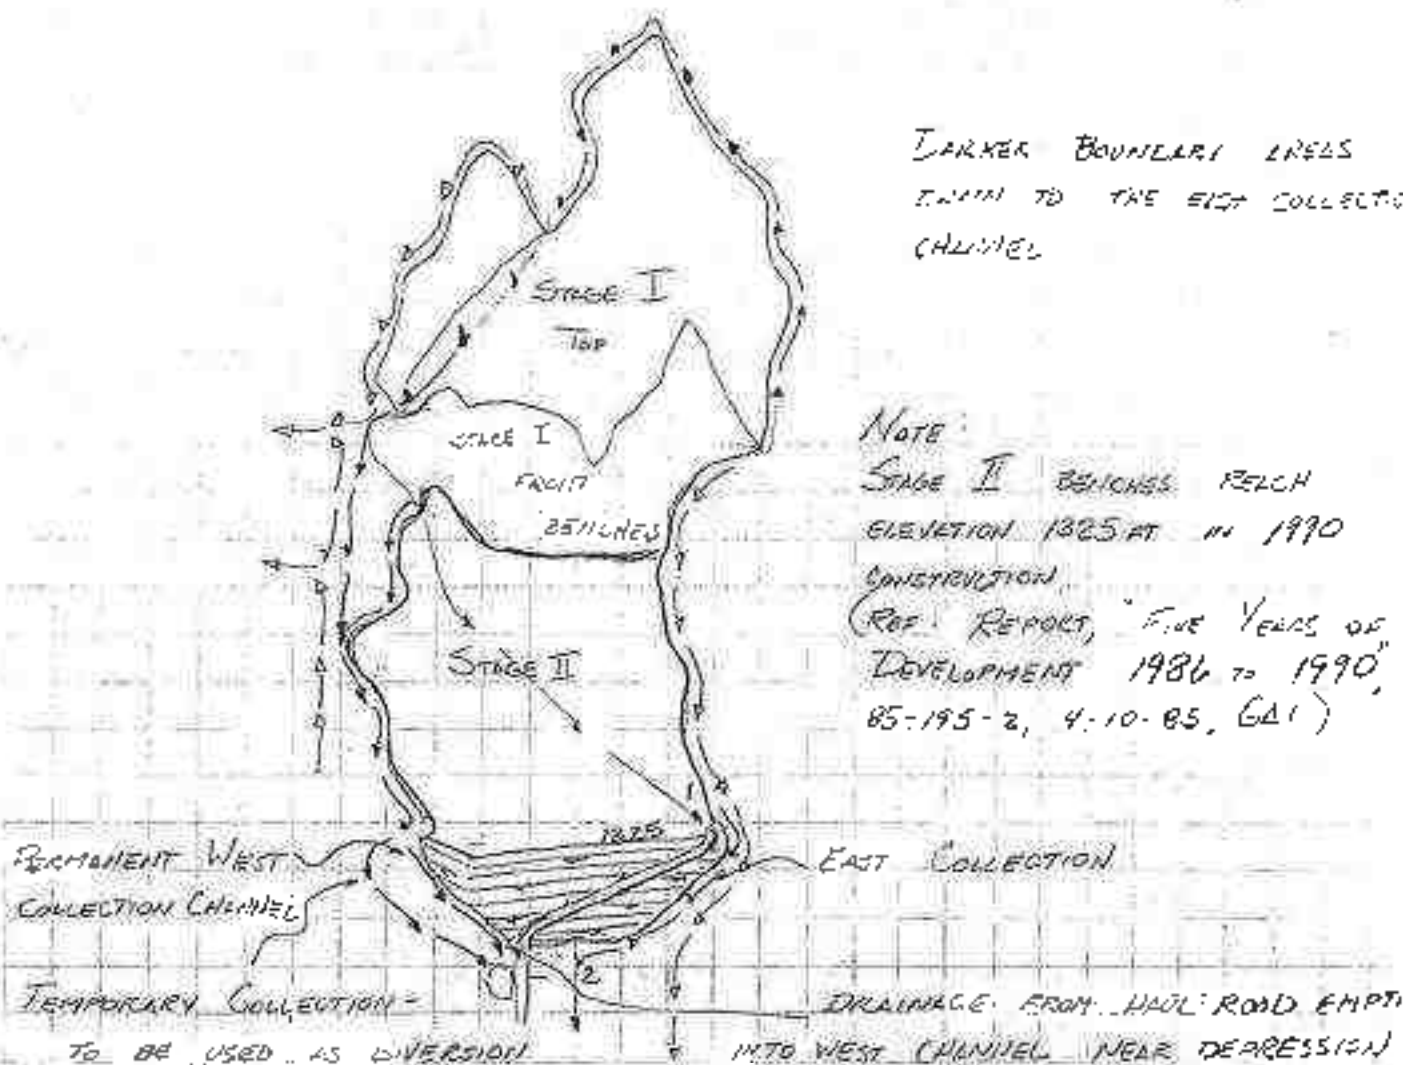 DARKER BOUNDARY AREAS
DRAIN TO THE EAST COLLECTIO
CHANNEL
STAGE I
TOP
STAGE I
FRONT
BENCHES
NOTE:
STAGE II BENCHES REACH
ELEVATION 1325 FT IN 1990
CONSTRUCTION
(REF: REPORT, "FIVE YEARS OF
DEVELOPMENT 1986 TO 1990",
85-195-2, 4-10-85, GAI)
STAGE II
1
1325
PERMANENT WEST
COLLECTION CHANNEL
EAST COLLECTION
2
TEMPORARY COLLECTION -
TO BE USED AS DIVERSION
DRAINAGE FROM HAUL ROAD EMPTI
INTO WEST CHANNEL NEAR DEPRESSION